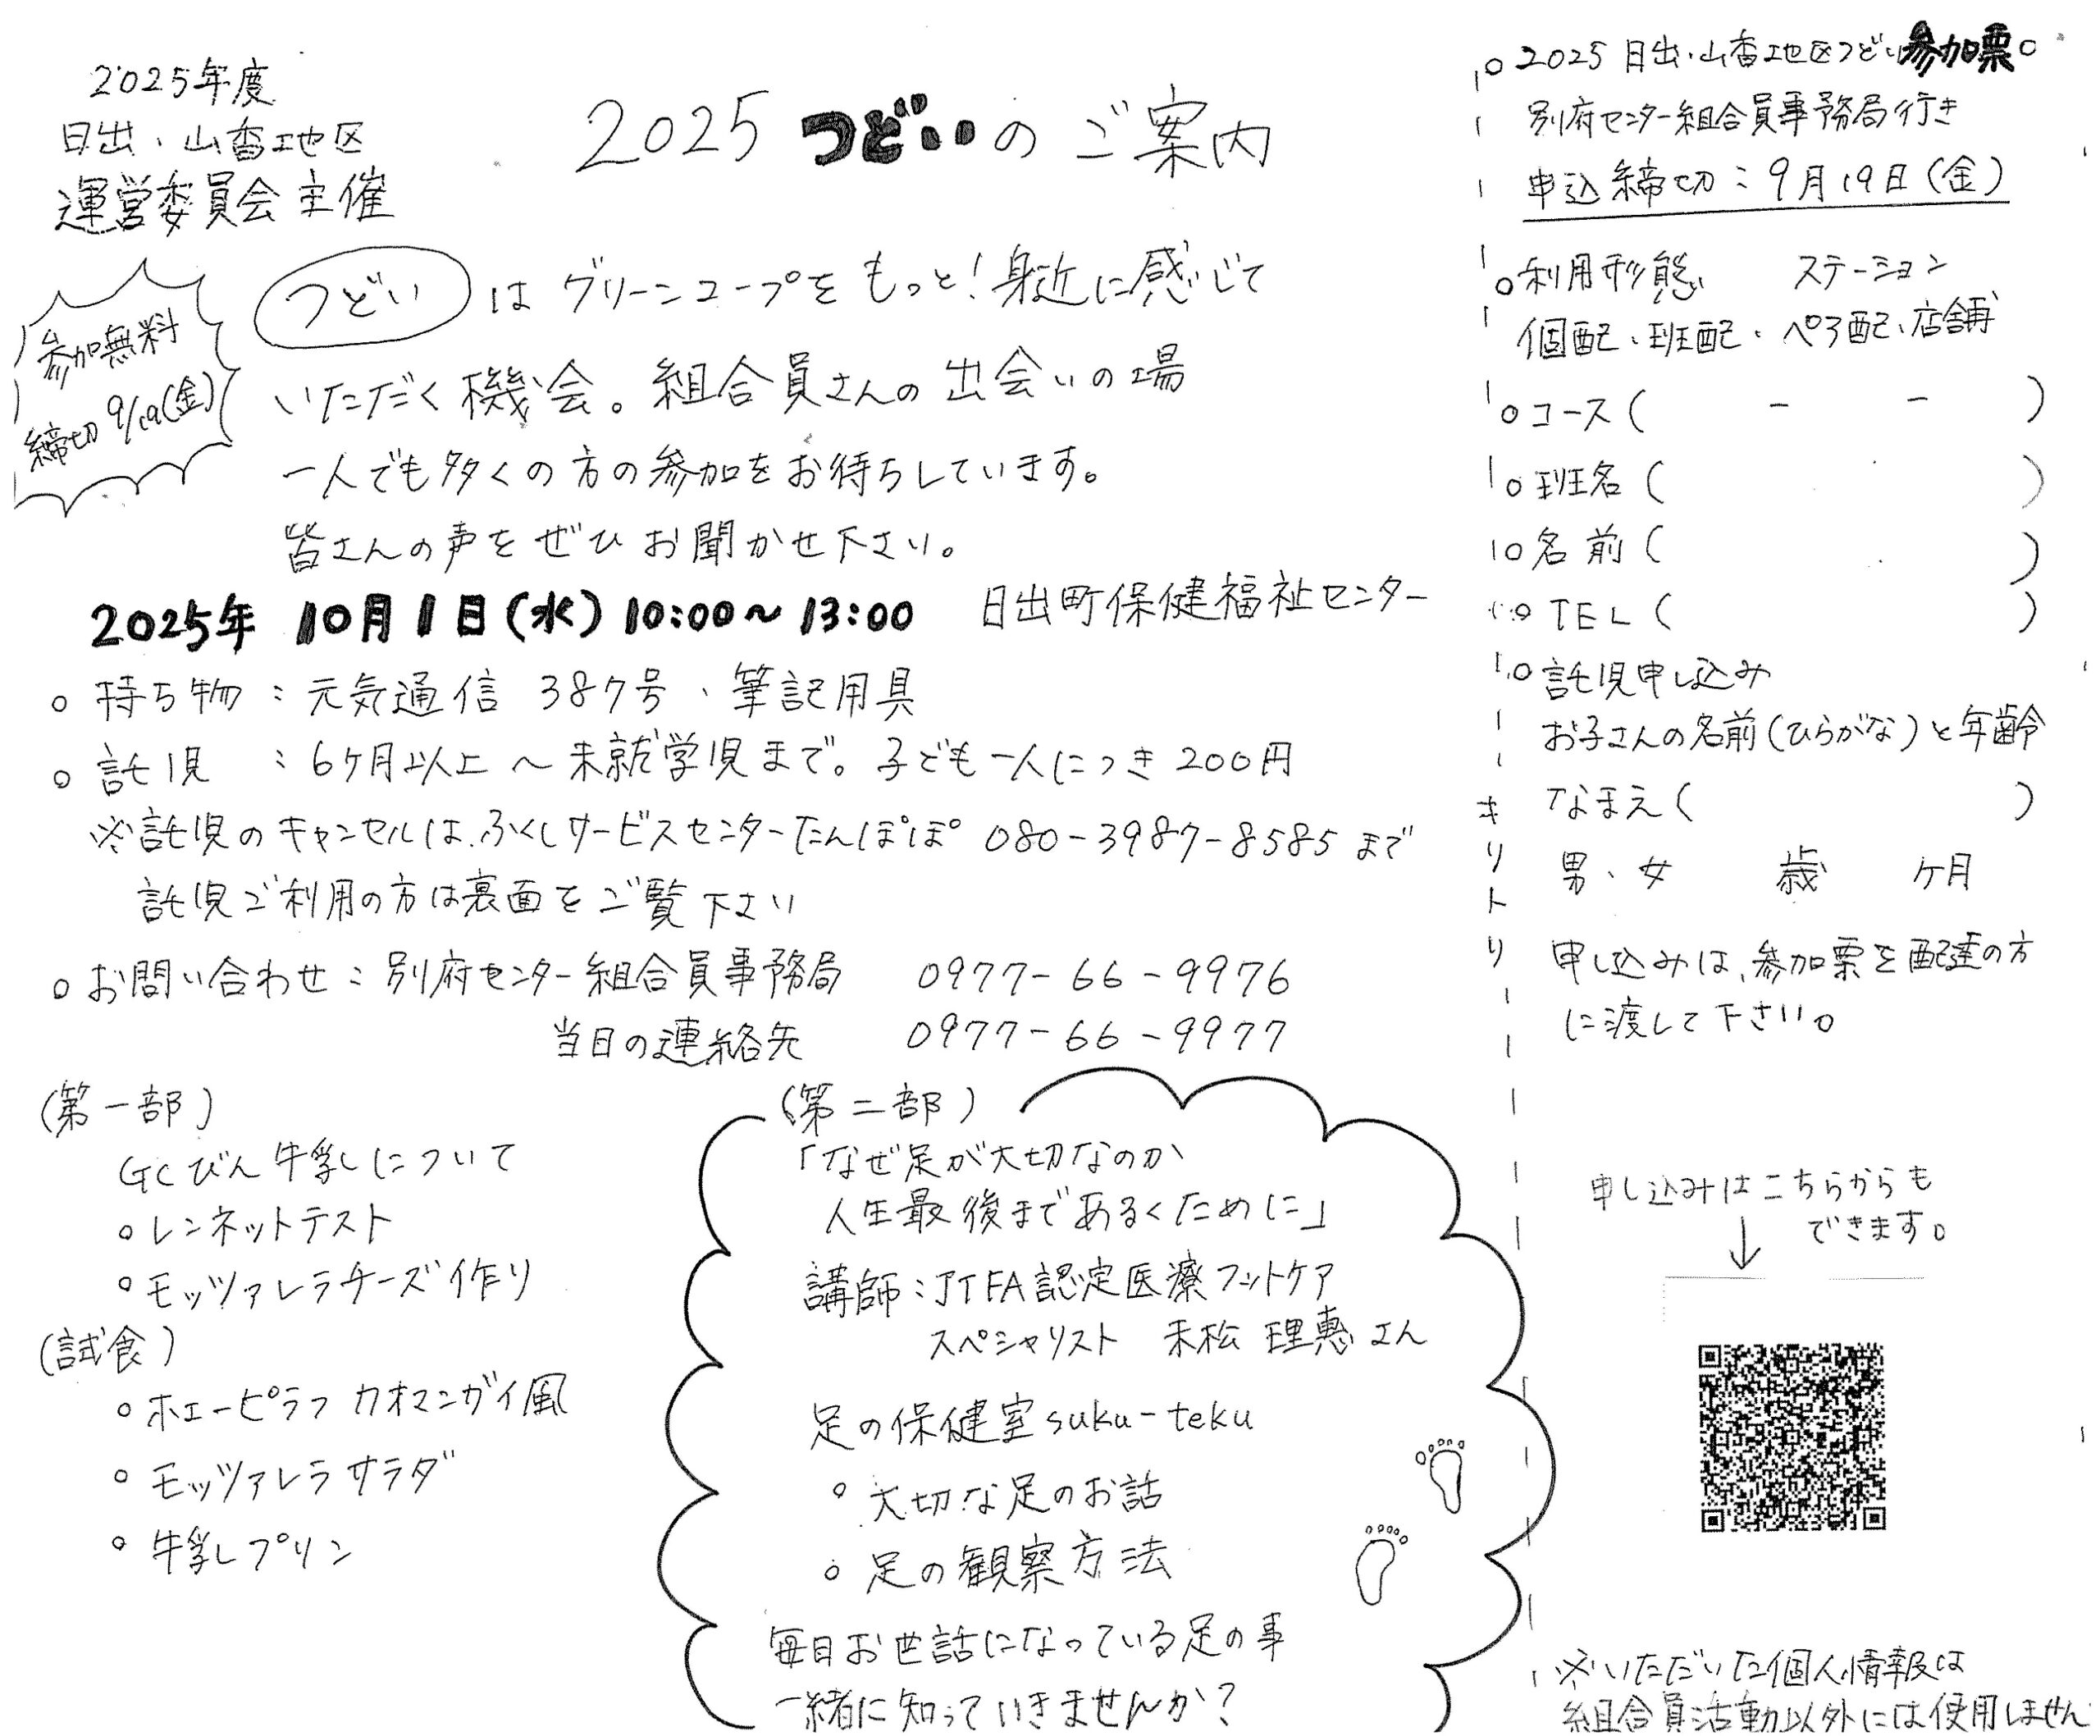 2025年度
日出・山香地区
運営委員会主催
2025 つどいのご案内
参加無料
締切 9/19(金)
つどい は グリーンコープをもっと!身近に感じて
いただく機会。組合員さんの出会いの場
一人でも多くの方の参加をお待ちしています。
皆さんの声をぜひお聞かせ下さい。
2025年 10月1日(水) 10:00〜13:00 日出町保健福祉センター
○ 持ち物 : 元気通信 387号、筆記用具
○ 託児 : 6ヶ月以上 〜 未就学児まで。子ども一人につき 200円
※託児のキャンセルは、ふくしサービスセンターたんぽぽ 080-3987-8585まで
託児ご利用の方は裏面をご覧下さい
○ お問い合わせ : 別府センター組合員事務局 0977-66-9976
当日の連絡先 0977-66-9977
(第一部)
GCびん牛乳について
○ レンネットテスト
○ モッツァレラチーズ作り
(試食)
○ ホエーピラフ カオマンガイ風
○ モッツァレラサラダ
○ 牛乳プリン
(第二部)
「なぜ足が大切なのか
人生最後まであるくために」
講師:JTFA認定医療フットケア
スペシャリスト 末松 理恵さん
足の保健室suku-teku
○ 大切な足のお話
○ 足の観察方法
毎日お世話になっている足の事
一緒に知っていきませんか?
○2025 日出・山香地区つどい参加票○
別府センター組合員事務局行き
申込締切:9月19日(金)
○利用形態 ステーション
個配、班配・ペア配、店舗
○コース( - - )
○班名( )
○名前( )
○TEL( )
○託児申し込み
お子さんの名前(ひらがな)と年齢
なまえ( )
男、女 歳 ヶ月
キリトリ
申し込みは、参加票を配達の方
に渡して下さい。
申し込みはこちらからも
できます。
↓
※いただいた個人情報は
組合員活動以外には使用しません